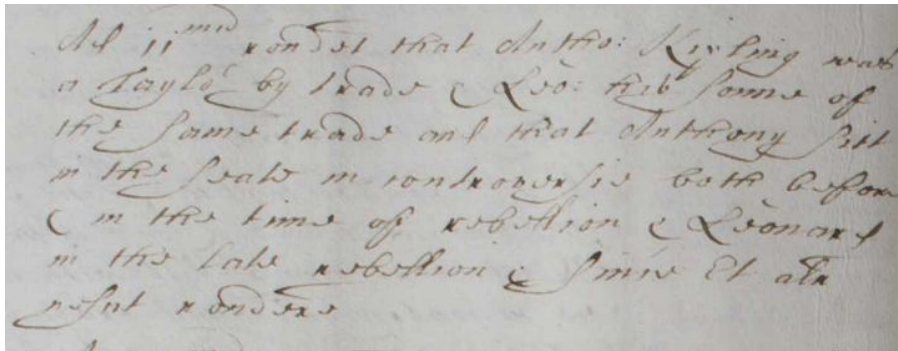 Ad ii^mu condet that Antho: Kipling was
a Taylor by trade & Leo: his sonne of
the same trade and that Anthony sitt
in the seate in controversie both before
& in the time of rebellion & Leonard
in the late rebellion & since Et alr
nescit condere